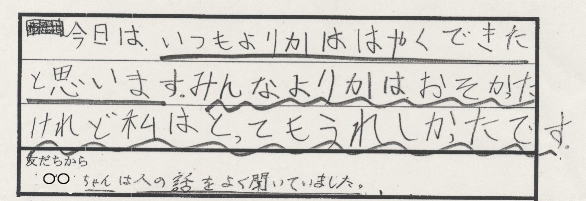 今日は、いつもよりかははやくできた
と思います。みんなよりかはおそかった
けれど私はとってもうれしかったです。
友だちから
○○ちゃんは人の話をよく聞いていました。